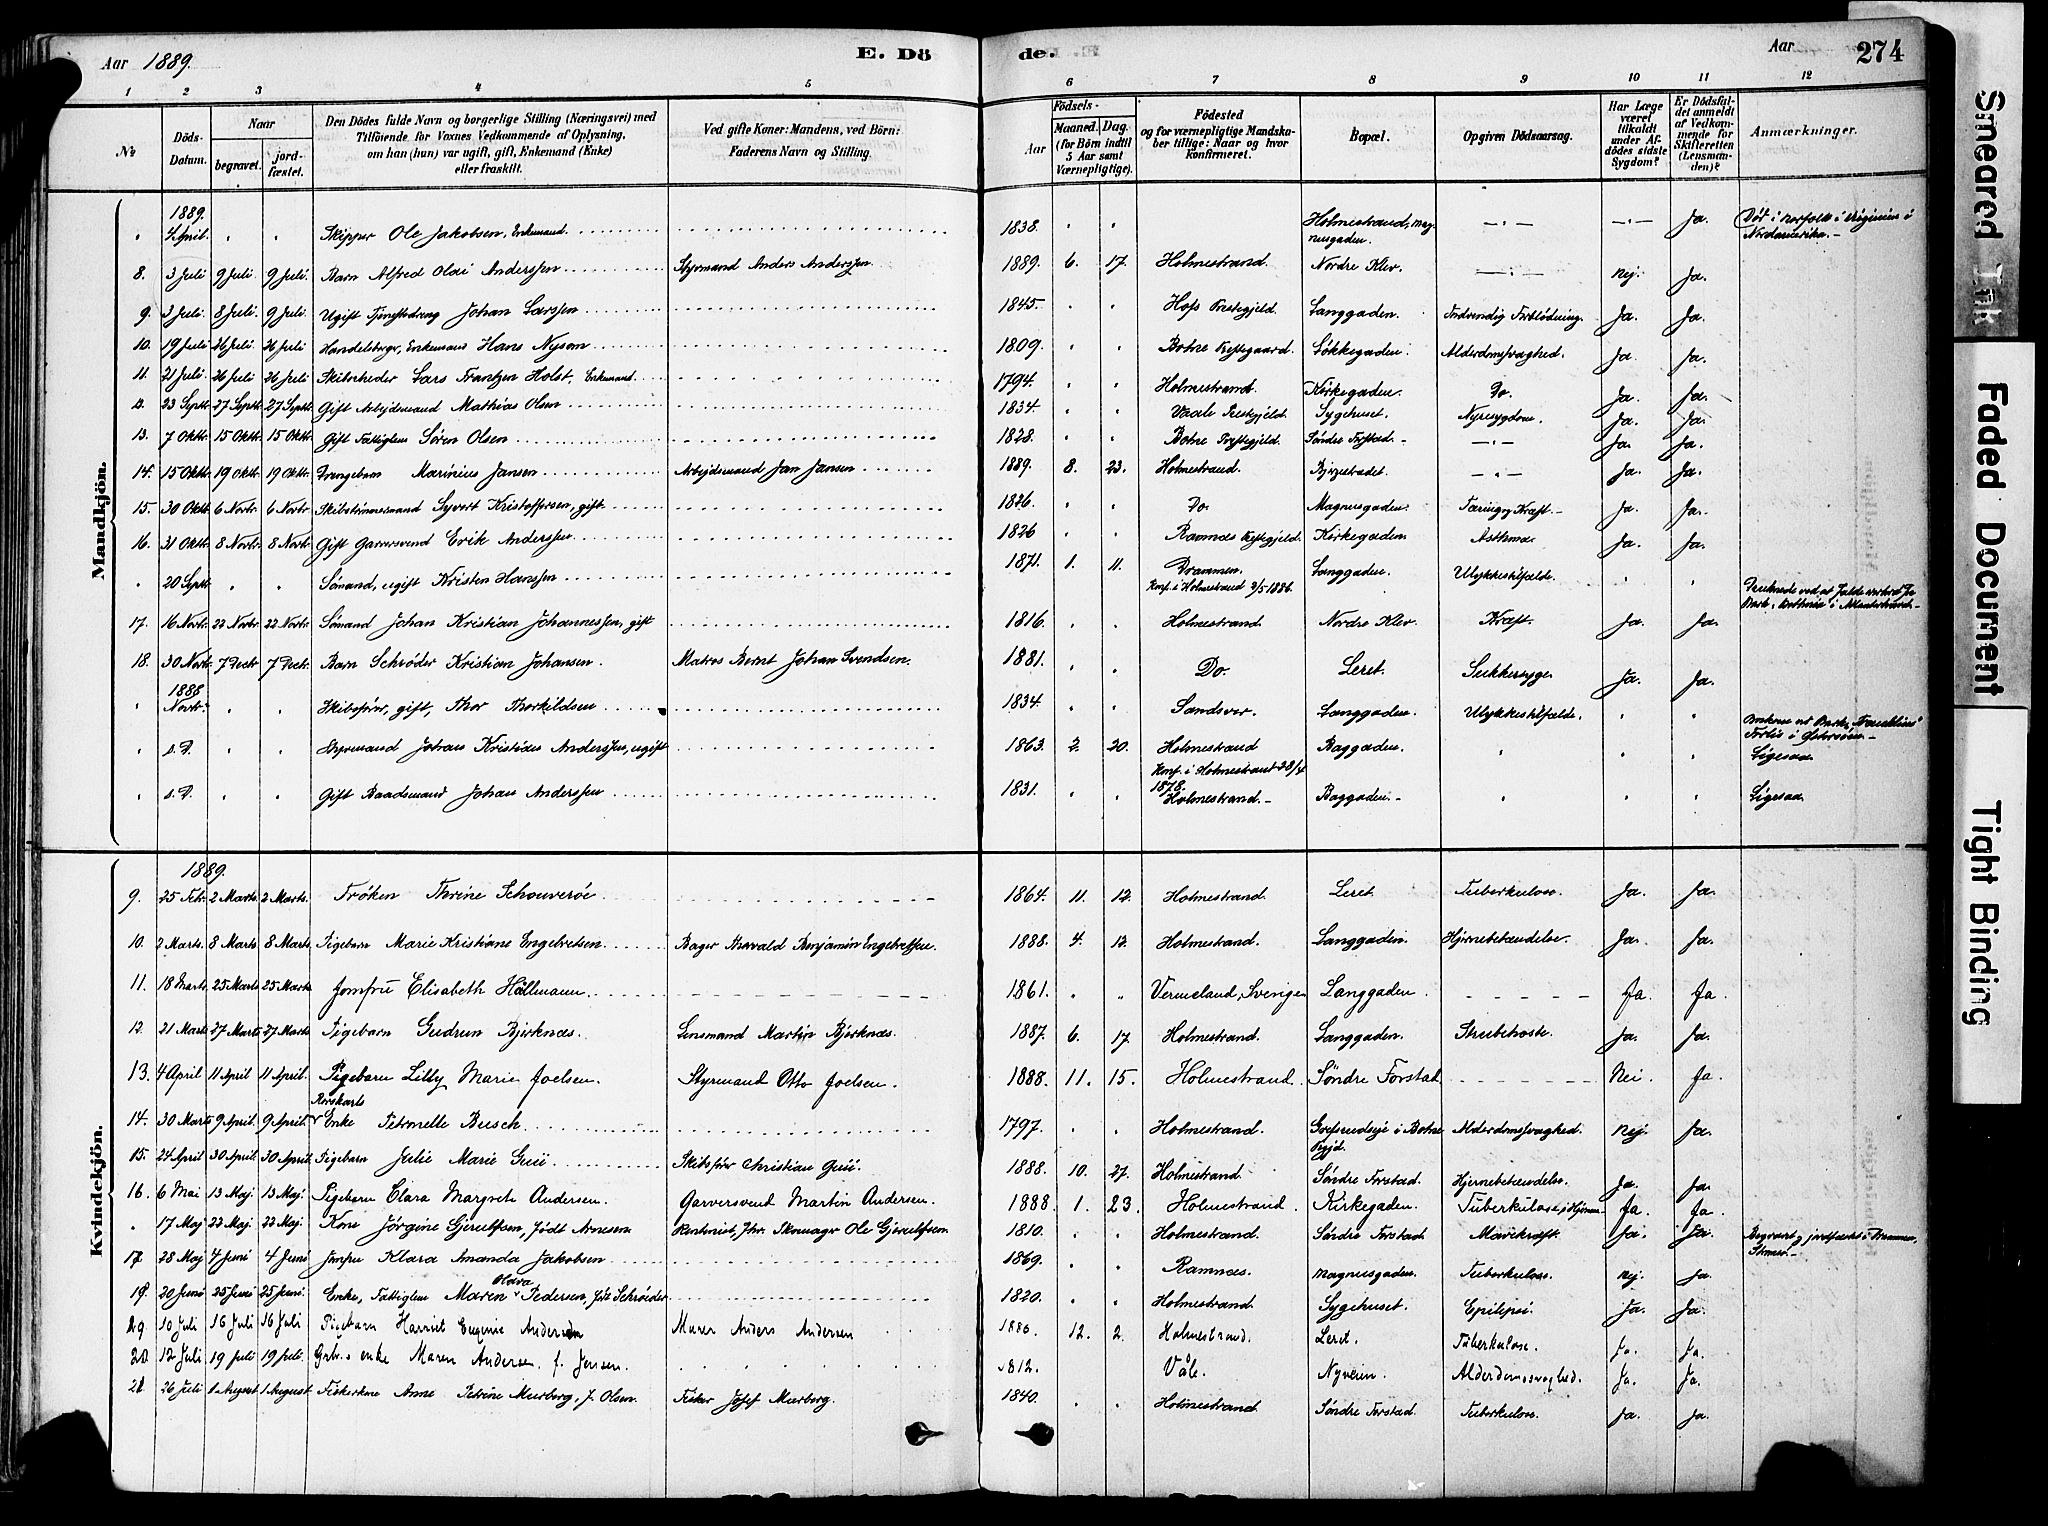 Aar 1889. E. Dö de. Aar 274
1 2 3 4 5 6 7 8 9 10 11 12
No Döds-Datum. Naar begravet. jordfæstet. Den Dödes fulde Navn og borgerlige Stilling (Næringsvei) med Tilföiende for Voxnes Vedkommende af Oplysning, om han (hun) var ugift, gift, Enkemand (Enke) eller fraskilt. Ved gifte Koner: Mandens, ved Börn: Faderens Navn og Stilling. Födsels- Aar Maaned. Dag. (for Börn indtil 5 Aar samt Værnepligtige). Födested og for værnepligtige Mandskaber tillige: Naar og hvor konfirmeret. Bopæl. Opgiven Dödsaarsag. Har Læge været tilkaldt under Afdödes sidste Sygdom? Er Dödsfaldet anmeldt af Vedkommende for Skifteretten (Lensmanden)? Anmærkninger.
Mandkjön.
1889.
" 4 April. " " Skipper Ole Jakobsen, Enkemand. 1838. " " Holmestrand, Magnusgaden. — " — — " — Ja. Död i Norfolk i Virginien i Nordamerika. —
8. 3 Juli 9 Juli. 9 Juli. Barn Alfred Olai Anderssen Styrmand Anders Anderssen 1889. 6. 17. Holmestrand. Nordre Klev. — " — Nej. Ja.
9. 3 Juli. 8 Juli. 9 Juli. Ugift Tjenestedreng Johan Larssen 1845. " " Hofs Prestegjeld. Langgaden. Indvendig Forblødning. Ja. Ja.
10. 19 Juli 26 Juli. 26 Juli Handelsborger, Enkemand Hans Nysom 1809. " " Botne Prestegaard. Løkkegaden. Alderdomssvaghed. Ja. Ja.
11. 21 Juli. 26 Juli 26 Juli Skibsrheder Lars Frantzen Holst, Enkemand. 1794. " " Holmestrand. Kirkegaden. Do. Ja. Ja.
12. 23 Septbr. 27 Septbr. 27 Septbr. Gift Arbejdsmand Mathias Olsen 1834. " " Vaale Prestegjeld. Sygehuset. Nyresygdom. Ja. Ja.
13. 7 Oktbr. 15 Oktbr. 15 Oktbr. Gift Fattiglem Søren Olsen 1828. " " Botne Prestegjeld. Søndre Forstad. — — " — Ja. Ja.
14. 15 Oktbr. 19 Oktbr. 19 Oktbr. Drengebarn Marinius Jansen Arbejdsmand Jan Jansen 1889. 8. 23. Holmestrand. — " — Ja. Ja.
15. 30 Oktbr. 6 Novbr. 6 Novbr. Skibstømmermand Syvert Kristoffersen, gift 1826. " " Do. Magnusgaden. Tæring, Kræft. — Ja. Ja.
16. 31 Oktbr. 8 Novbr. 8 Novbr. Gift Garversvend Erik Anderssen 1826 Ramnæs Prestegjeld. Kirkegaden. Asthma. Ja. Ja.
" 20 Septbr. " " Sømand, ugift Kristen Hanssen 1871. 1. 11. Drammen. Konf. i Holmestrand 2/5 1886. Langgaden. Ulykkestilfælde. " " Druknede ved at falde overbord fra Bark
17. 16 Novbr. 22 Novbr. 22 Novbr. Sømand Johan Kristian Johannessen, gift 1816. " " Holmestrand. Nordre Klev. Kræft. Ja. Ja.
18. 30 Novbr. 7 Decbr. 7 Decbr. Barn Schrøder Kristian Johansen. Matros Bernt Johan Svendsen. 1881. " " Do. Leret. Sukkersyge. Ja. Ja.
1888
" Novbr. " " Skibsfører, gift, Thor Thorkildsen 1834. " " Sandsver. Langgaden. Ulykkestilfælde. " " Omkom at Bark "Franklins" Forlis i Østersøen. —
" s. D. " " Styrmand Johan Kristian Anderssen, ugift 1863. 2. 20. Holmestrand Konf. i Holmestrand 28/4 1878. Baggaden. " " " Ligesaa
" s. D. " " Gift Baadsmand Johan Anderssen 1831. " " Holmestrand. — Baggaden. — " " " Ligesaa
Kvindekjön.
1889.
9. 25 Febr. 2 Marts. 2 Marts. Frøken Thrine Schouverøe 1864. 11. 12. Holmestrand. Leret Tuberkulose. Ja. Ja.
10. 2 Marts. 8 Marts. 8 Marts. Pigebarn Marie Kristiane Engebretsen Bager Thorvald Benjamin Engebretsen. 1888. 4. 12. Holmestrand. Langgaden. Hjernebetændelse. Ja. Ja.
11. 18 Marts. 25 Marts 25 Marts Jomfru Elisabeth Hällmann 1861. " " Vermeland, Sverige Langgaden Ja. Ja.
12. 21 Marts 27 Marts 27 Marts. Pigebarn Gudrun Bjerknæs. Lensmand Martin Bjerknæs. 1887. 6. 17. Holmestrand. Langgaden. Strubehoste. Ja. Ja.
13. 4 April 11 April 11 April. Pigebarn Lilly Marie Joelsen. Styrmand Otto Joelsen. 1888. 11. 15. Holmestrand. Søndre Forstad Nei. Ja.
14. 30 Marts 9 April. 9 April. Enke Petronelle Busch 1797. " " Holmestrand. i Botne Prgjd. Alderdomssvaghed. Nej. Ja.
15. 24 April 30 April. 30 April Pigebarn Julie Marie Guii Skibsfører Christian Guii. 1888. 10. 27. Holmestrand Søndre Forstad. Hjernebetændelse. Ja. Ja.
16. 6 Mai 13 Maj. 13 Maj. Pigebarn Clara Margrete Andersen. Garversvend Martin Andersen. 1888. 1. 23. Holmestrand. Kirkegaden. Tuberkulose i Hjernen. Ja. Ja.
" 17 Maj 22 Maj. 22 Maj. Kone Jørgine Gjerulfsen, født Arnesen. Skomager Ole Gjerulfsen 1810. " " Holmestrand. Søndre Forstad Mavekræft. Ja. Ja. Begravet og jordfæstet i
17 28 Maj 4 Juni 4 Juni Jomfru Klara Amanda Jakobsen 1869. " " Ramnæs. Magnusgaden. Tuberkulose. Nej. Ja.
18. 20 Juni 25 Juni 25 Juni. Enke, Fattiglem Maren Olava Pedersen, født Schrøder 1820. " " Holmestrand. Sygehuset. Epilepsi. Ja. Ja.
19 10 Juli 16 Juli 16 Juli Pigebarn Harriet Eugenie Andersen Murer Anders Andersen 1886. 12. 2. Holmestrand. Leret. Tuberkulose. Ja. Ja.
20. 12 Juli 19 Juli 19 Juli. enke Maren Andersen f. Jensen. 1812. " " Våle. Nyveien. Alderdomssvaghed. Ja. Ja.
21 26 Juli 1 August 1 August. Fiskerkone Anne Petrine Murberg, f. Olsen. Fisker Josef Murberg. 1840. " " Holmestrand Søndre Forstad. Tuberkulose. Ja. Ja.
Smeared Ink
Faded Document
Tight Binding